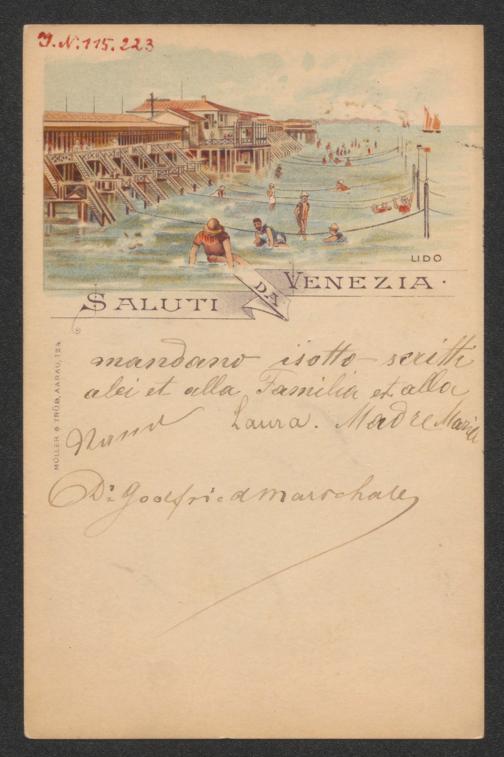 J.N. 115.223
LIDO
SALUTI DA VENEZIA.
MÜLLER & TRÜB, AARAU, 124
mandano isotto-scritti
alei et alla Familia et alla
Laura. Madre Maria
Dr. Godfried Marschall